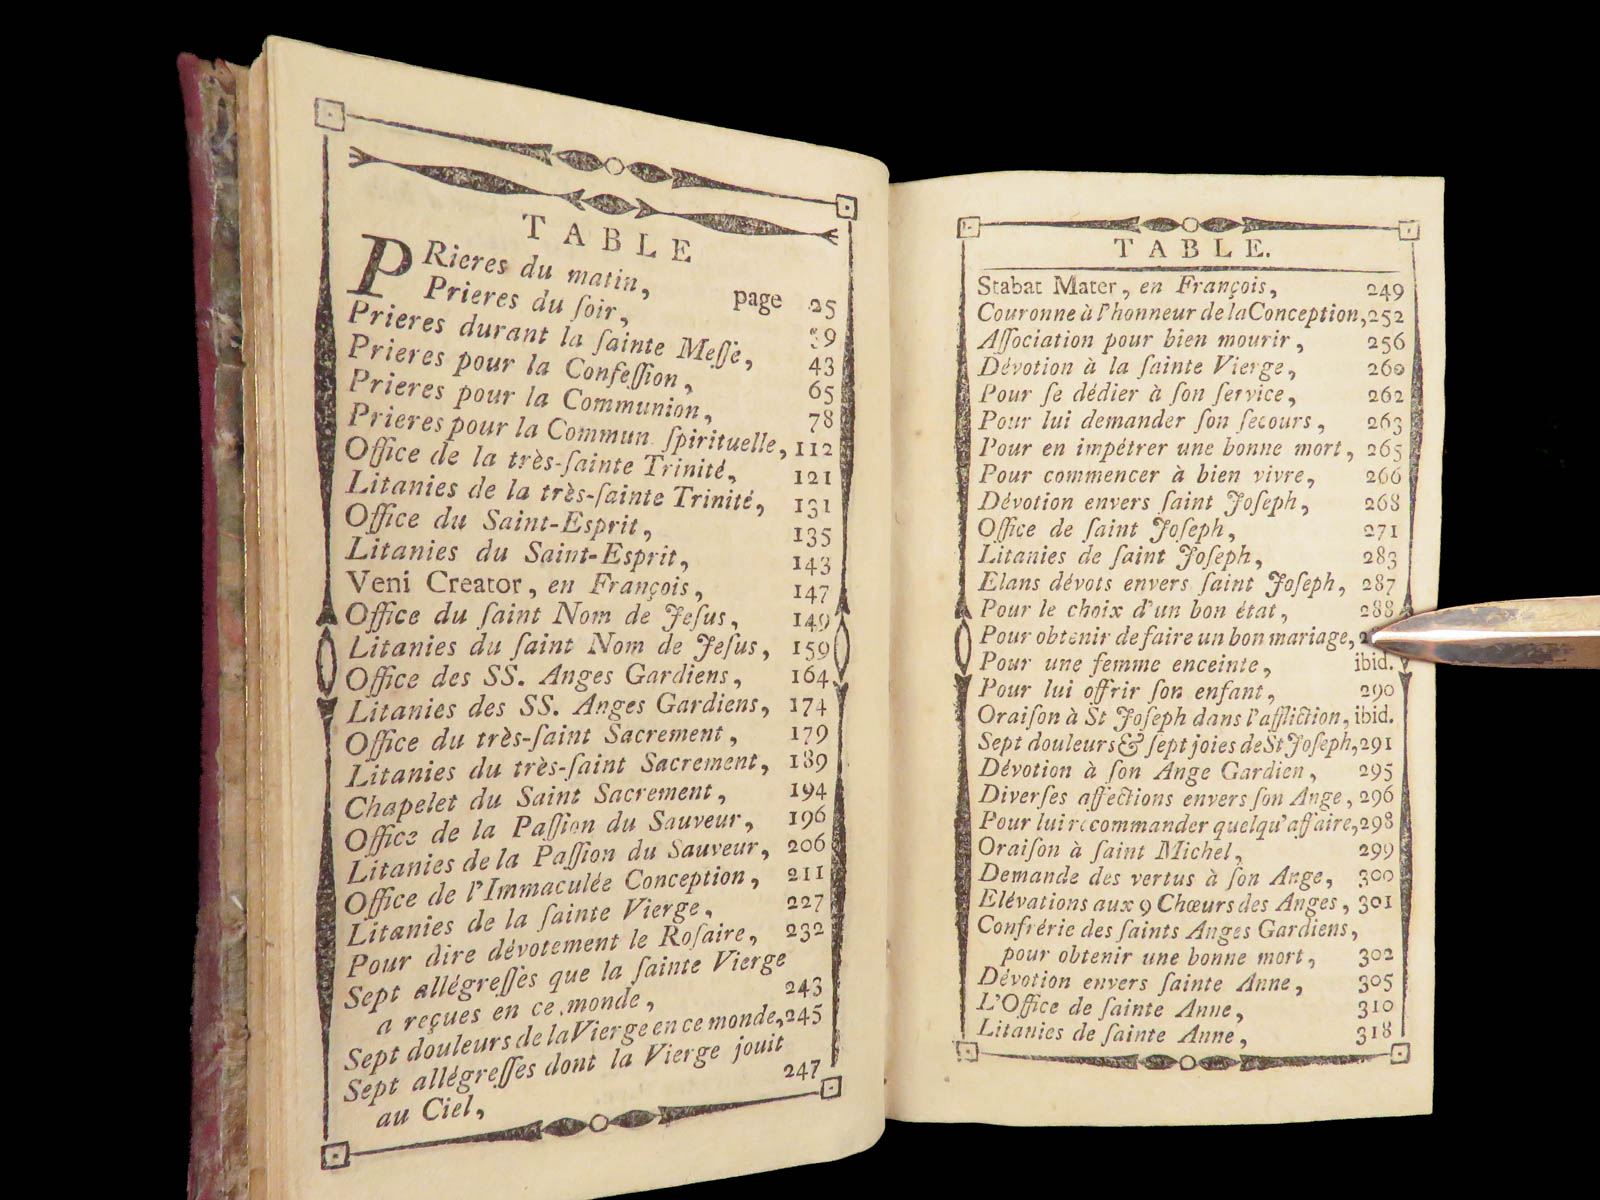 TABLE
PRieres du matin, page 25
Prieres du ſoir, 39
Prieres durant la ſainte Meſſe, 43
Prieres pour la Confeſſion, 65
Prieres pour la Communion, 78
Prieres pour la Commun. ſpirituelle, 112
Office de la très-ſainte Trinité, 121
Litanies de la très-ſainte Trinité, 131
Office du Saint-Eſprit, 135
Litanies du Saint-Eſprit, 143
Veni Creator, en François, 147
Office du ſaint Nom de Jeſus, 149
Litanies du ſaint Nom de Jeſus, 159
Office des SS. Anges Gardiens, 164
Litanies des SS. Anges Gardiens, 174
Office du très-ſaint Sacrement, 179
Litanies du très-ſaint Sacrement, 189
Chapelet du Saint Sacrement, 194
Office de la Paſſion du Sauveur, 196
Litanies de la Paſſion du Sauveur, 206
Office de l'Immaculée Conception, 211
Litanies de la ſainte Vierge, 227
Pour dire dévotement le Roſaire, 232
Sept allégreſſes que la ſainte Vierge
a reçues en ce monde, 243
Sept douleurs de la Vierge en ce monde, 245
Sept allégreſſes dont la Vierge jouit
au Ciel, 247
TABLE.
Stabat Mater, en François, 249
Couronne à l'honneur de la Conception, 252
Aſſociation pour bien mourir, 256
Dévotion à la ſainte Vierge, 260
Pour ſe dédier à ſon ſervice, 262
Pour lui demander ſon ſecours, 263
Pour en impétrer une bonne mort, 265
Pour commencer à bien vivre, 266
Dévotion envers ſaint Joſeph, 268
Office de ſaint Joſeph, 271
Litanies de ſaint Joſeph, 283
Elans dévots envers ſaint Joſeph, 287
Pour le choix d'un bon état, 288
Pour obtenir de faire un bon mariage,
Pour une femme enceinte, ibid.
Pour lui offrir ſon enfant, 290
Oraiſon à St Joſeph dans l'affliction, ibid.
Sept douleurs & ſept joies de St Joſeph, 291
Dévotion à ſon Ange Gardien, 295
Diverſes affections envers ſon Ange, 296
Pour lui recommander quelqu'affaire, 298
Oraiſon à ſaint Michel, 299
Demande des vertus à ſon Ange, 300
Elévations aux 9 Chœurs des Anges, 301
Confrérie des ſaints Anges Gardiens,
pour obtenir une bonne mort, 302
Dévotion envers ſainte Anne, 305
L'Office de ſainte Anne, 310
Litanies de ſainte Anne, 318